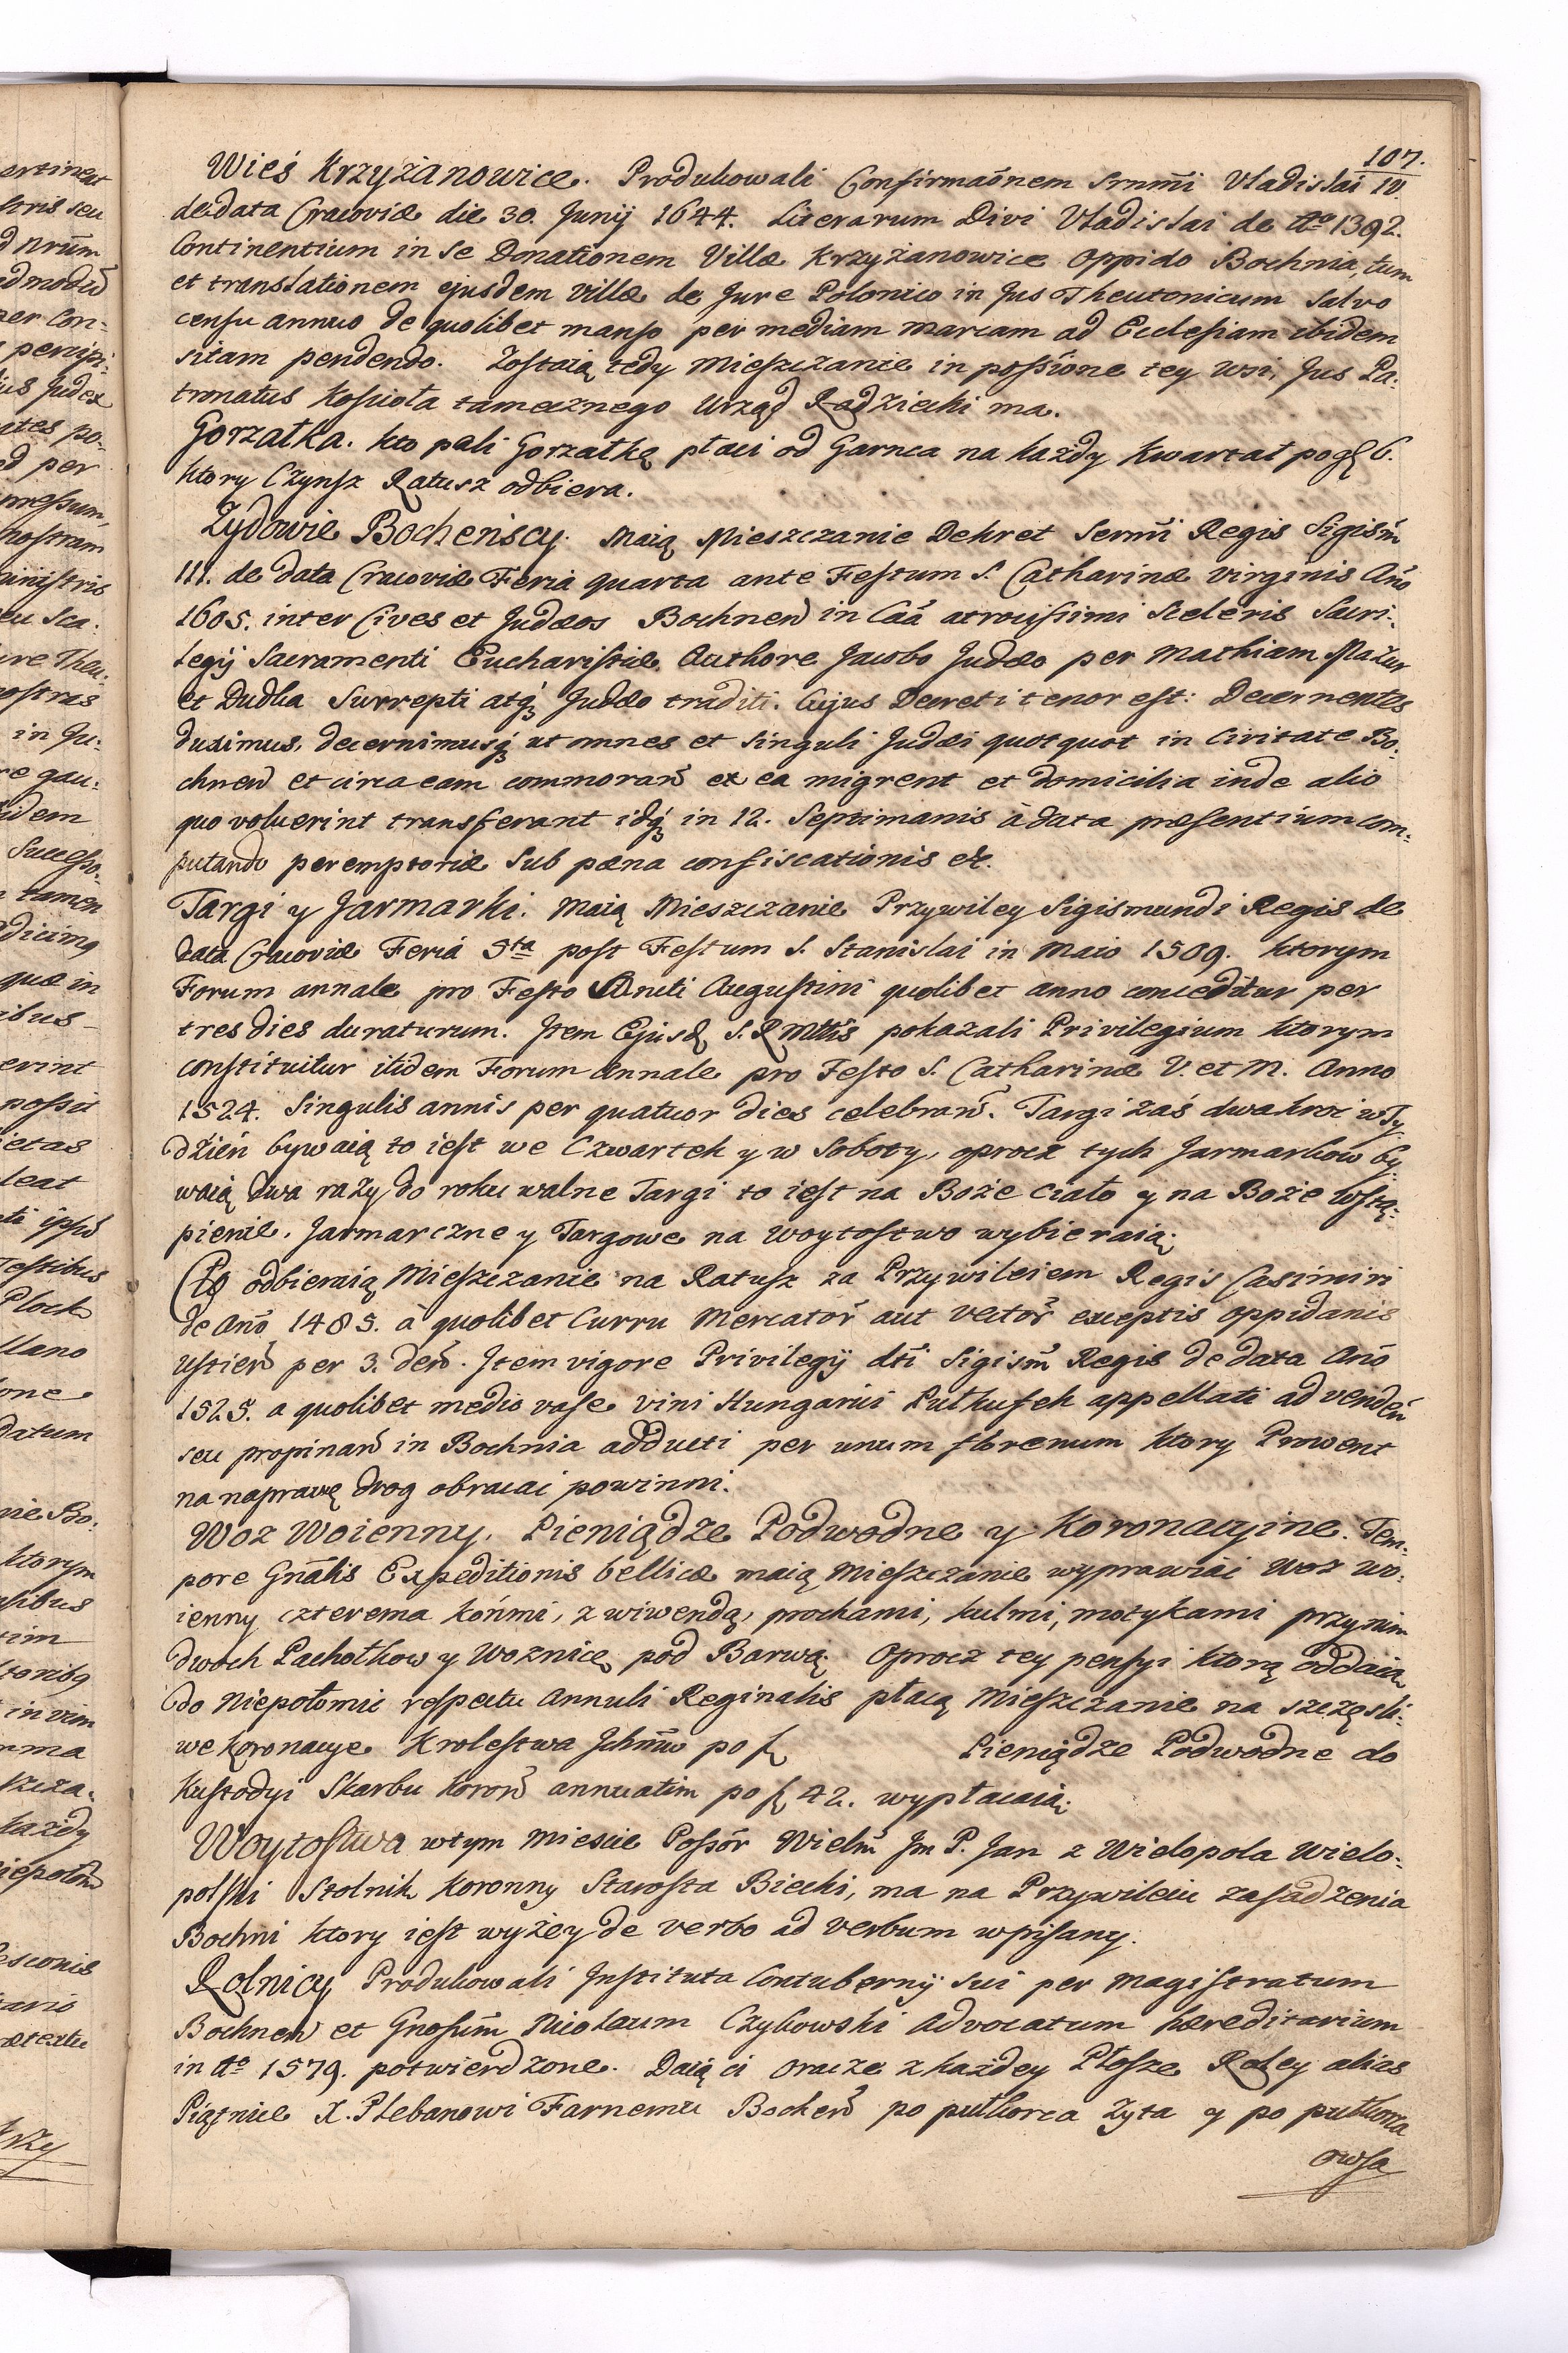 107.
Wieś Krzyżanowice. Produkowali Confirmaõnem Srnmĩ Vladislai IV.
de data Cracoviæ die 30. Junij 1644. Literarum Divi Vladislai de Aº 1392.
Continentium in se Donationem Villæ Krzyżanowice Oppido Bochnia, tum
et translationem ejusdem villæ de Jure Polonico in Jus Theutonicum salvo
censu annuo de quolibet manso per mediam marcam ad Ecclesiam ibidem
sitam pendendo. Zostaią tedy Mieszczanie in possione tey wsi, Jus Pa:
tronatus Koscioła tamecznego Urząd Radziecki ma.
Gorzałka. Kto pali Gorzałkę płaci od Garnca na każdy Kwartał po gł 6.
ktory Czynsz Ratusz odbiera.
Zydowie Bochenscy. Maią Mieszczanie Dekret Sermĩ Regis Sigism̃
III. de data Cracoviæ Feria quarta ante Festum S. Catharinæ Virginis Año
1605. inter Cives et Judæos Bochneñ in Caã atrocissimi Sceleris Sacri:
legij Sacramenti Eucharistiæ Authore Jacobo Judæo per Mathiam Mazur
et Dudka Surrepti atq́ꝫ Judæo traditi. Cujus Decreti tenor est: Decernentes
duximus, decernimusq́ꝫ ut omnes et singuli Judæi quotquot in Civitate Bo:
chneñ et circa eam commorañ ex ea migrent et domicilia inde alio
quo voluerint transferant idq́ꝫ in 12. Septimanis à data præsentium com:
putando peremptorie sub pæna confiscationis &c.
Targi y Jarmarki. Maią Mieszczanie Przywiley Sigismundi Regis de
data Cracoviæ Feriá 5ta post Festum S. Stanislai in Maio 1509. ktorym
Forum annale pro Festo Sancti Augustini quolibet anno conceditur per
tres dies duraturum. Item Ejusd S. R Mttis pokazali Privilegium ktorym
constituitur itidem Forum Annale pro Festo S. Catharinæ V. et M. Anno
1524. Singulis annis per quatuor dies celebrañ. Targi zaś dwakroć w Ty
dzień bywaią to iest we Czwartek y w Soboty, oprocz tych Jarmarkow by
waią dwa razy do roku walne Targi to iest na Boże Ciało y na Boże Wstą:
pienie. Jarmarczne y Targowe na Woytostwo wybieraią.
Cło odbieraią Mieszczanie na Ratusz za Przywileiem Regis Casimiri
de Año 1485. à quolibet Curru Mercatoř aut Vectoř exceptis Oppidanis
Ustieñ per 3. deñ. Item vigore Privilegij dti Sigism̃ Regis de data Año
1525. a quolibet medio vase vini Hungarici Puthufek appellati ad vendeñ
seu propinañ in Bochnia adducti per unum florenum ktory Prowent
na naprawę drog obracai powinni.
Woz Woienny, Pieniądze Podwodne y Koronacyine. Tem:
pore Gnãlis Expeditionis bellicæ maią Mieszczanie wyprawiać Woz wo:
ienny czterema końmi, z wiwendą, prochami, kulmi, motykami przy nim
dwoch Pachołkow y Woznicę pod Barwą. Oprocz tey pensyi ktorą oddaią
do Niepołomic respectu Annuli Reginalis płacą Mieszczanie na szczęsli:
we Koronacye Krolestwa Ichm̃w po fł Pieniądze Podwodne do
Kustodyi Skarbu Koroñ annuatim po fł 42. wypłacaią.
Woytostwa w tym Miescie Possõr Wielm̃ Jm P. Jan z Wielopola Wielo:
polski Stolnik Koronny Starosta Biecki, ma na Przywileiu zasadzenia
Bochni ktory iest wyżey de verbo ad verbum wpisany.
Rolnicy Produkowali Instituta Contubernij sui per Magistratum
Bochneñ et Gnosum̃ Nicolaum Czykowski Advocatum hæreditarium
in Aº 1579. potwierdzone. Daią ci Oracze z każdey Płosze Roley alias
Piątnice X. Plebanowi Farnemu Bocheñ po pułkorca Zyta y po pułkorca
owsa